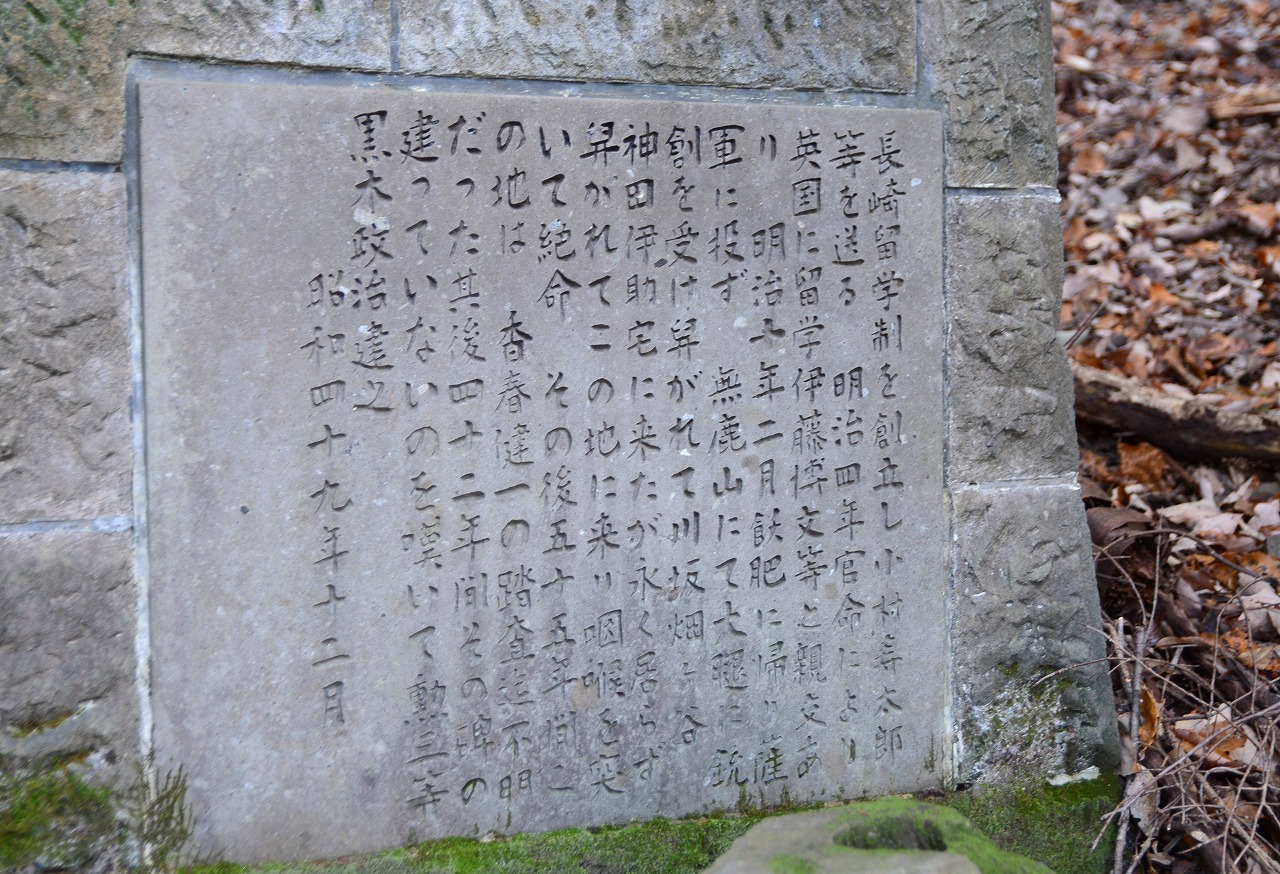 長崎留学制を創立し小村寿太郎
等を送る　明治四年官命により
英国に留学伊藤博文等と親交あ
り　明治十年二月飫肥に帰り薩
軍に投ず　無鹿山にて大腿に銃
創を受け舁がれて川坂畑ヶ谷
神田伊助宅に来たが永く居らず
舁がれてこの地に来り咽喉を突
いて絶命　その後五十五年間こ
の地は　香春健一の踏査迄不明
だった其後四十二年間その碑の
建っていないのを嘆いて勲三等
黒木政治建之
昭和四十九年十二月